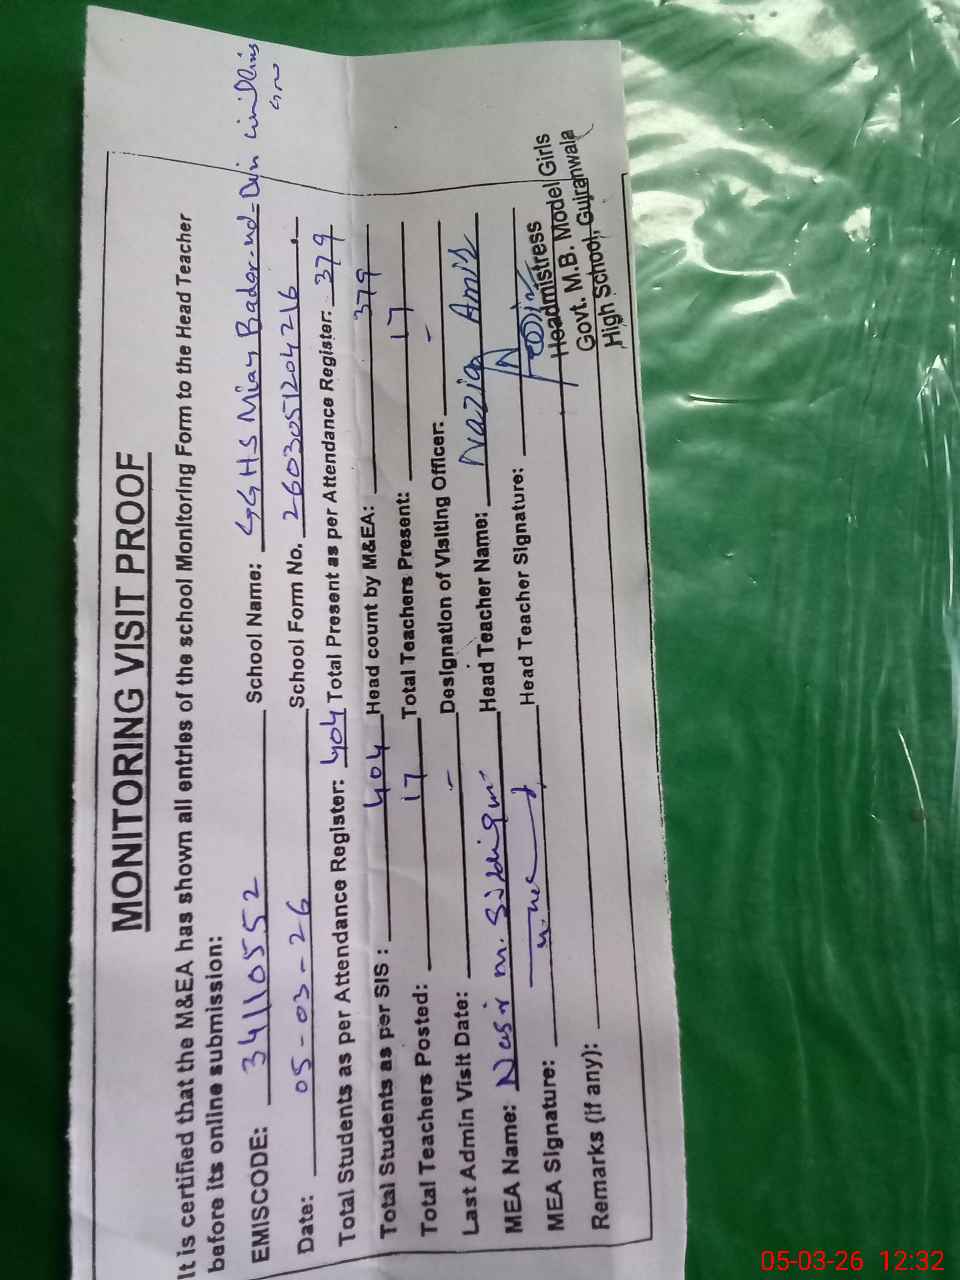 MONITORING VISIT PROOF
It is certified that the M&EA has shown all entries of the school Monitoring Form to the Head Teacher
before its online submission:
EMISCODE: 34110552 School Name: GGHS Mian Badar-ud-Din
Date: 05-03-26 School Form No. 2603051204216
Total Students as per Attendance Register: 404 Total Present as per Attendance Register: 379
Total Students as per SIS : 404 Head count by M&EA: 379
Total Teachers Posted: 17 Total Teachers Present: 17
Last Admin Visit Date: - Designation of Visiting Officer: -
MEA Name: Nasir M. Siddiqui Head Teacher Name: Nazia Amis
MEA Signature: Head Teacher Signature:
Headmistress
Govt. M.B. Model Girls
High School, Gujranwala
Remarks (if any):
05-03-26 12:32